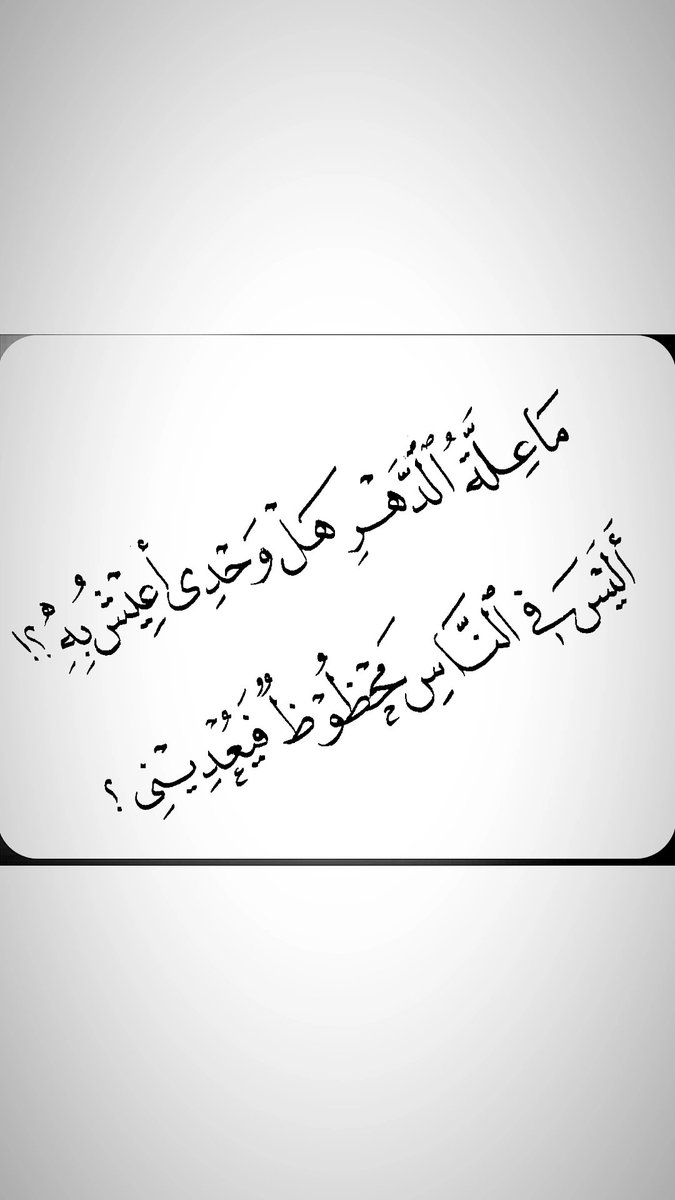 مَا عِلَّةُ ٱلدَّهْرِ هَلْ وَحْدِى أَعِيْشُ بِهِ ؟!
أَلَيْسَ فِي ٱلنَّاسِ مَحْظُوْظٌ فَيُعْدِيْنِى ؟